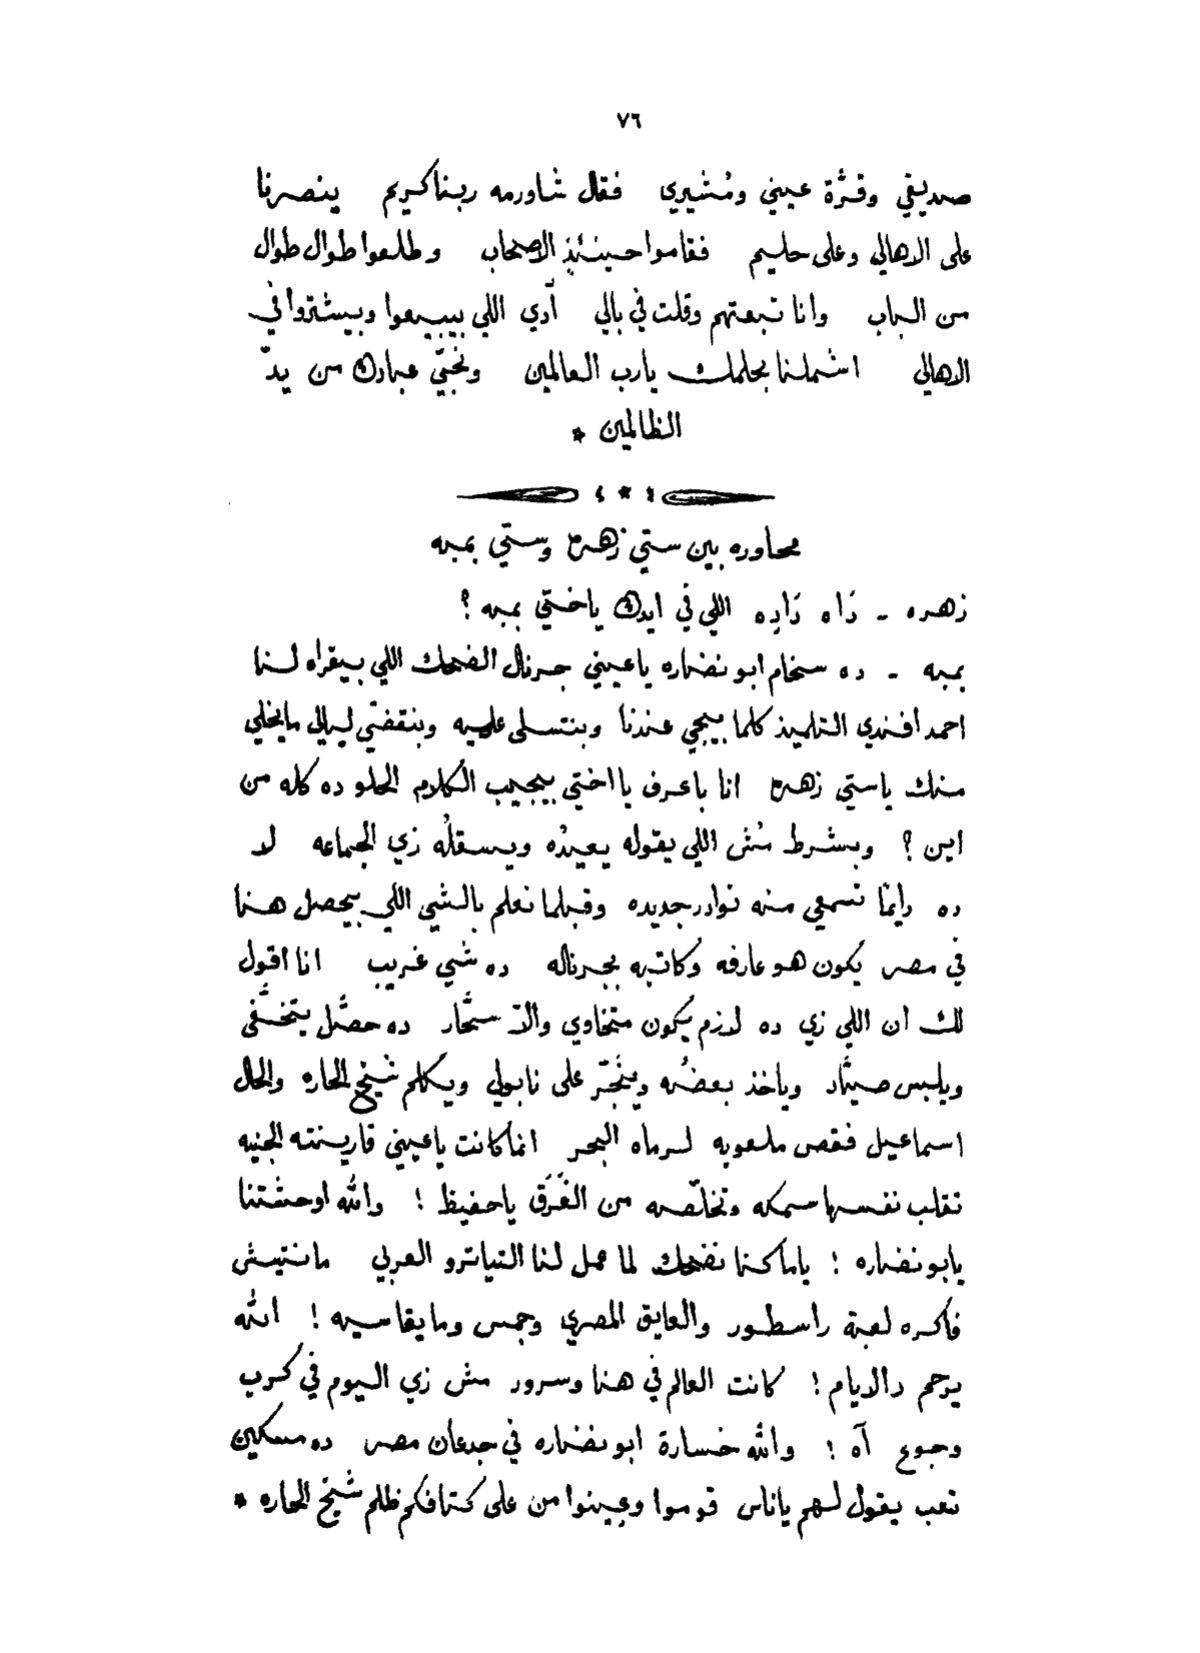 ٧٦
صديقي وقرّة عيني ومُشيري فقال شاورمه ربنا كريم ينصرنا
على الاهالي وعلى حليم فقاموا حينئذٍ الاصحاب وطلعوا طوال طوال
من الباب وانا تبعتهم وقلت في بالي آدي اللي بيبيعوا وبيشتروا في
الاهالي اشملنا بحلمك يارب العالمين ونجّي عبادك من يدّ
الظالمين *
محاوره بين ستي زهره وستي بمبه
زهره ـ دَاه دَادِه اللي في ايدك ياختي بمبه ؟
بمبه ـ ده سخام ابو نضاره ياعيني جرنال الضحك اللي بيقراه لنا
احمد افندي التلميذ كلما بيجي عندنا وبنتسلى عليه وبنقضّي ليالي مايخلي
منك ياستي زهره انا باعرف يا اختي بيجيب الكلام الحلو ده كله من
اين ؟ وبشرط مُش اللي يقوله يعيدُه ويسقلُه زي الجماعه لا
ده دايمًا تسمعي منه نوادر جديده وقبلما نعلم بالشي اللي بيحصل هنا
في مصر يكون هو عارفه وكاتبه بجرناله ده شي غريب انا اقول
لك ان اللي زي ده لازم يكون متخاوي والّا سحّار ده حصّل يتخفّى
ويلبس صيّاد وياخذ بعضُه وينجّر على نابولي ويكلم شيخ الحاره والحال
اسماعيل فقص ملعوبه لرماه البحر انما كانت ياعيني قارينته الجنيه
تقلب نفسها سمكه وتخلّصه من الغَرَق ياحفيظ ! والله اوحشتنا
يابو نضاره ! ياما كنا نضحك لما عمل لنا التياترو العربي مانتيش
فاكره لعبة راسطور والعايق المصري وجمس ومايقاسيه ! الله
يرحم دالايام ! كانت العالم في هنا وسرور مش زي اليوم في كرب
وجوع آه ! والله خسارة ابو نضاره في جدعان مصر ده مسكين
تعب يقول لهم ياناس قوموا وعينوا من على كتافكم ظلم شيخ الحاره *